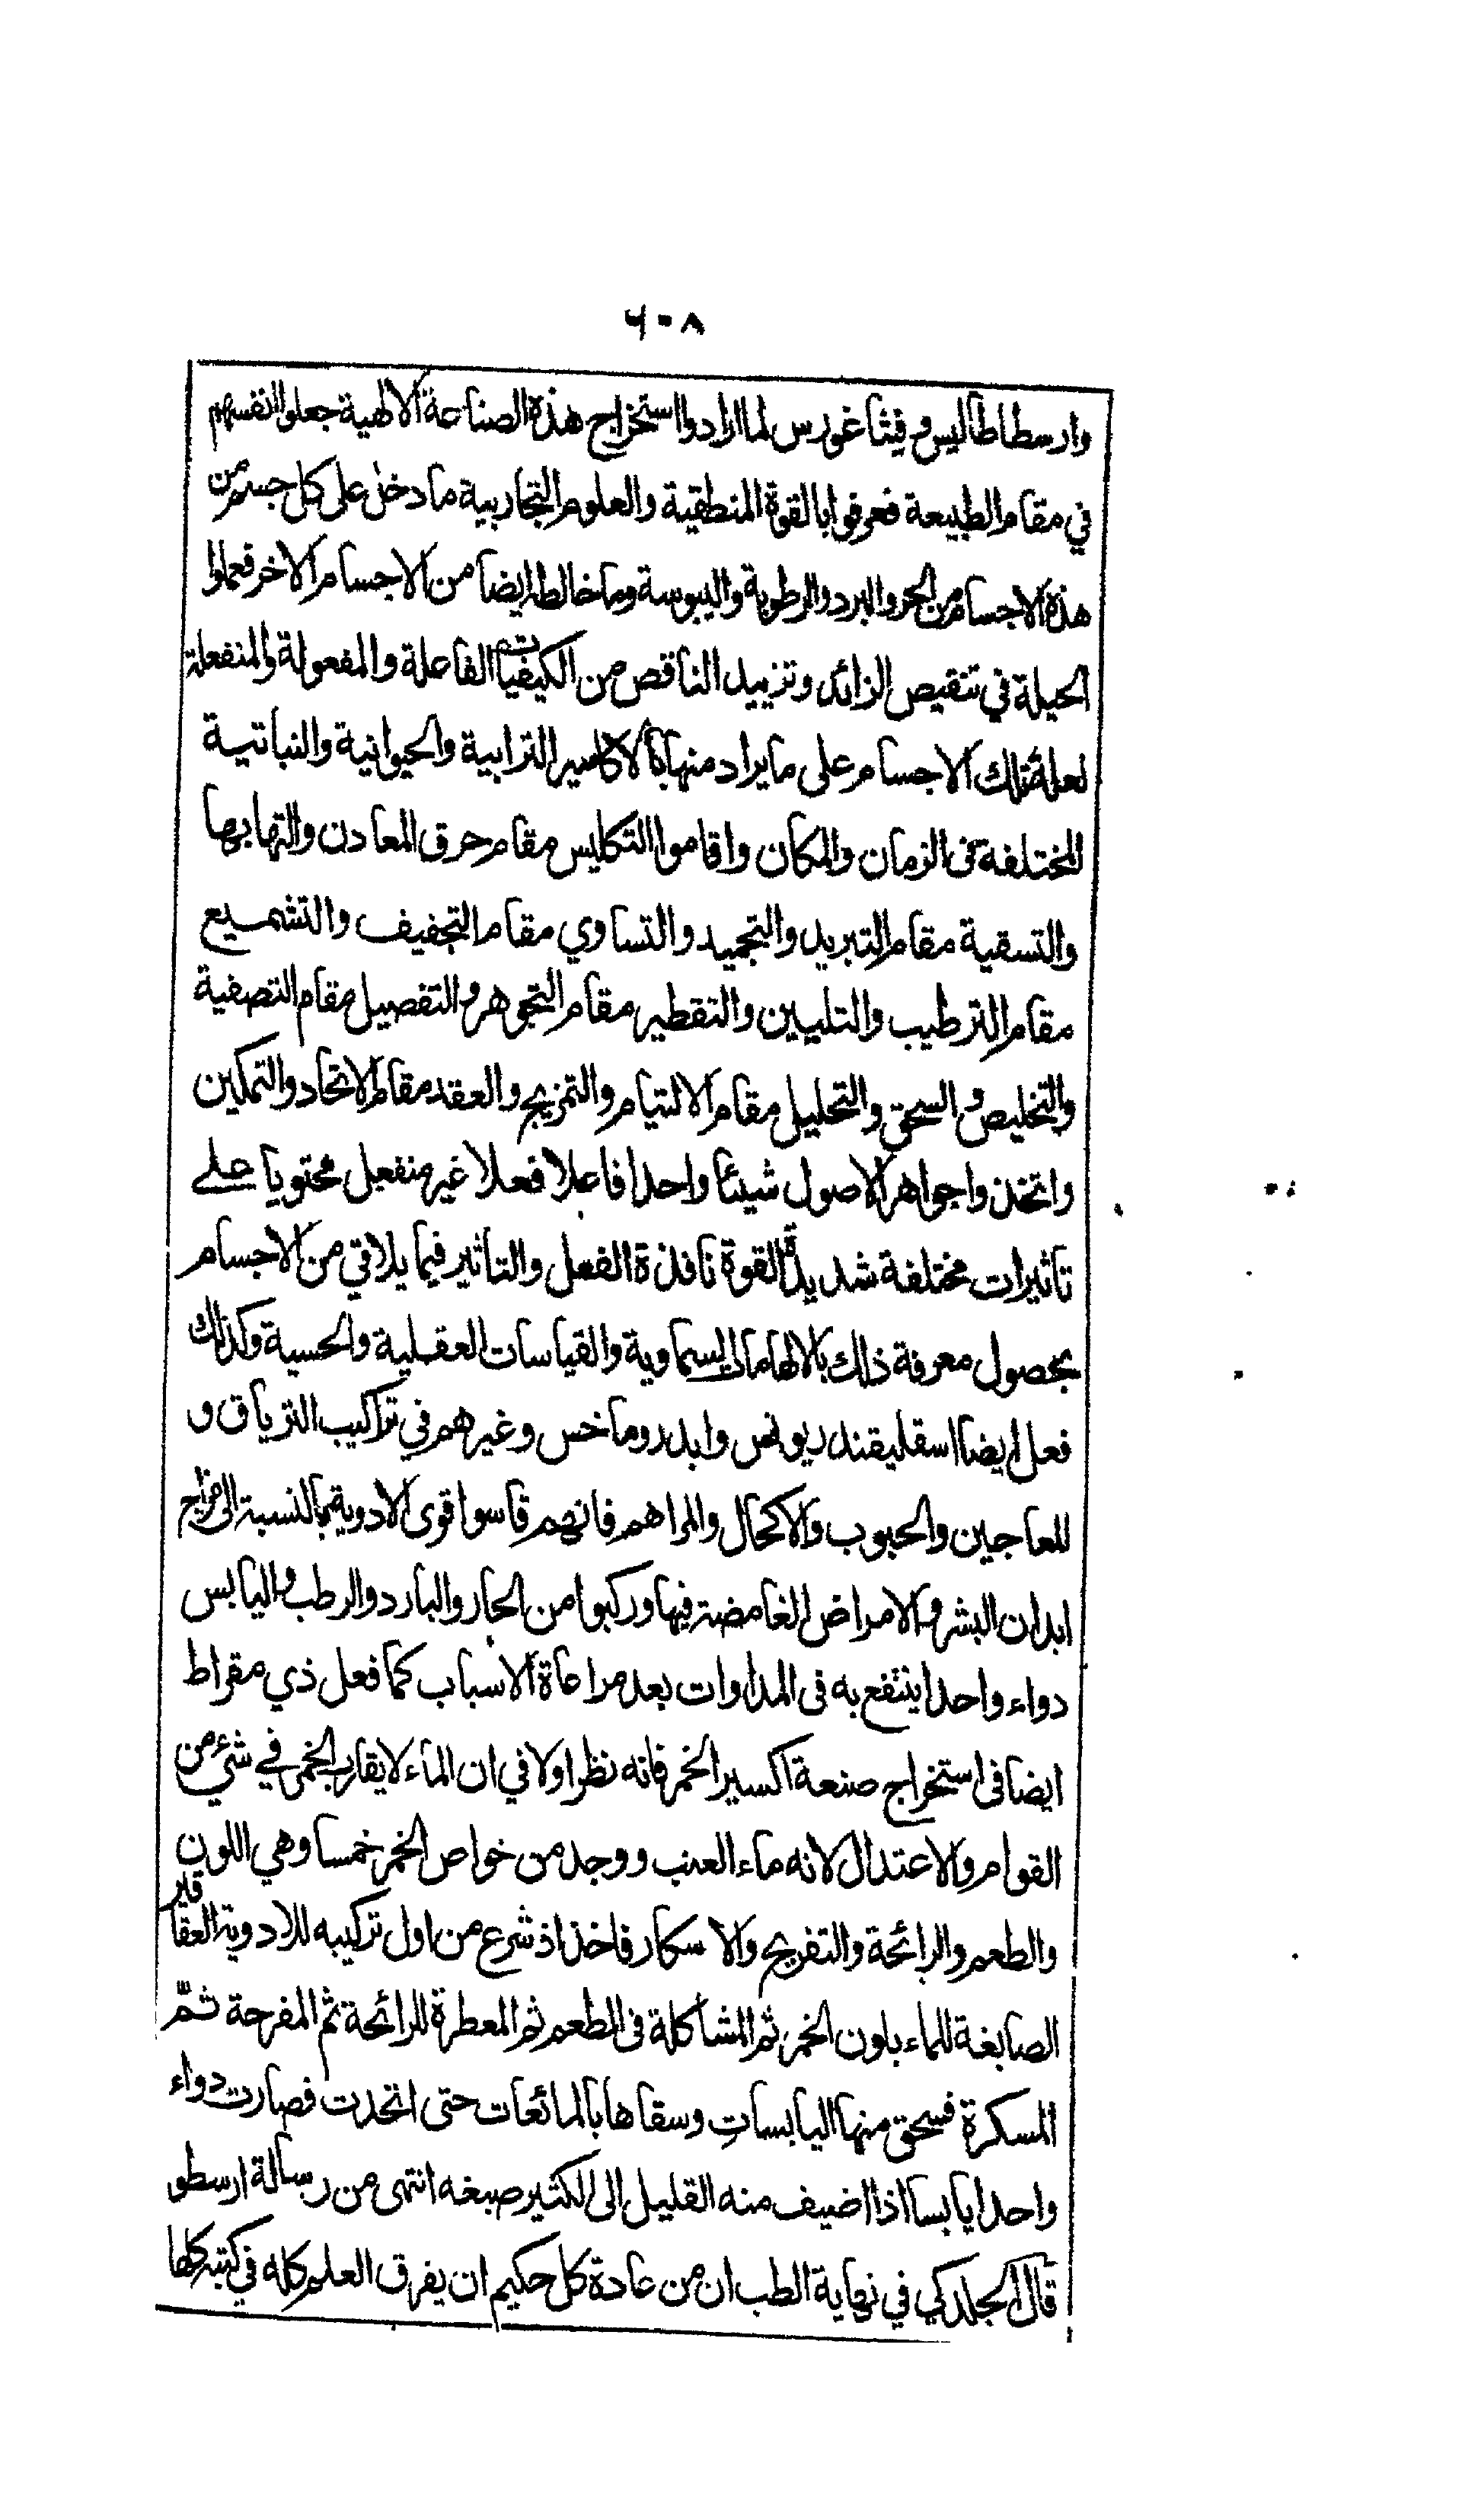 ٦٠٨
وارسطاطاليس وفيثاغورس لما ارادوا استخراج هذه الصناعة الالهية جعلوا انفسهم
في مقام الطبيعة فعرفوا بالقوة المنطقية والعلوم التجاربية ما دخل على كل جسم من
هذه الاجسام من الحر والبرد والرطوبة واليبوسة وما خالطه ايضا من الاجسام الاخر فعملوا
الحيلة في تنقيص الزائد وتزييد الناقص من الكيفيات الفاعلة والمفعولة والمنفعلة
لعلة تلك الاجسام على ما يراد منها بالاكاسير الترابية والحيوانية والنباتية
المختلفة في الزمان والمكان واقاموا التكليس مقام حرق المعادن والتهابها
والتسقية مقام التبريد والتجميد والتساوي مقام التجفيف والتشميع
مقام الترطيب والتليين والتقطير مقام التجوهر والتفصيل مقام التصفية
والتخليص والسحق والتحليل مقام الالتيام والتمزيج والعقد مقام الاتحاد والتمكين
واتخذوا جواهر الاصول شيئا واحدا فاعلا فعلا غير منفعل محتويا على
تاثيرات مختلفة شديدة القوة نافذة الفعل والتاثير فيما يلاقي من الاجسام
بحصول معرفة ذلك بالالهامات السماوية والقياسات العقلية والحسية وكذلك
فعل ايضا وابدروماخس وغيرهم في تراكيب الترياق و
المعاجين والحبوب والاكحال والمراهم فانهم قاسوا قوى الادوية بالنسبة الى مزاج
ابدان البشر والامراض الغامضة فيها وركبوا من الحار والبارد والرطب واليابس
دواء واحدا ينتفع به في المداوات بعد مراعاة الاسباب كما فعل ذي مقراط
ايضا في استخراج صنعة اكسير الخمر فانه نظر اولا في ان الماء لا يقارب الخمر في شيء من
القوام والاعتدال لانه ماء العنب ووجد من خواص الخمر خمسا وهي اللون
والطعم والرائحة والتفريح والاسكار فاخذ اذ شرع من اول تركيبه للادوية العقاقير
الصابغة للماء بلون الخمر ثم المشاكلة في الطعم ثم المعطرة للرائحة ثم المفرحة ثم
المسكرة فسحق منها اليابسات وسقاها بالمائعات حتى اتحدت فصارت دواء
واحدا يابسا اذا اضيف منه القليل الى الكثير صبغه انتهى من رسالة ارسطو
قال الجلدكي في نهاية الطلب ان من عادة كل حكيم ان يفرق العلم كله في كتبه كلها